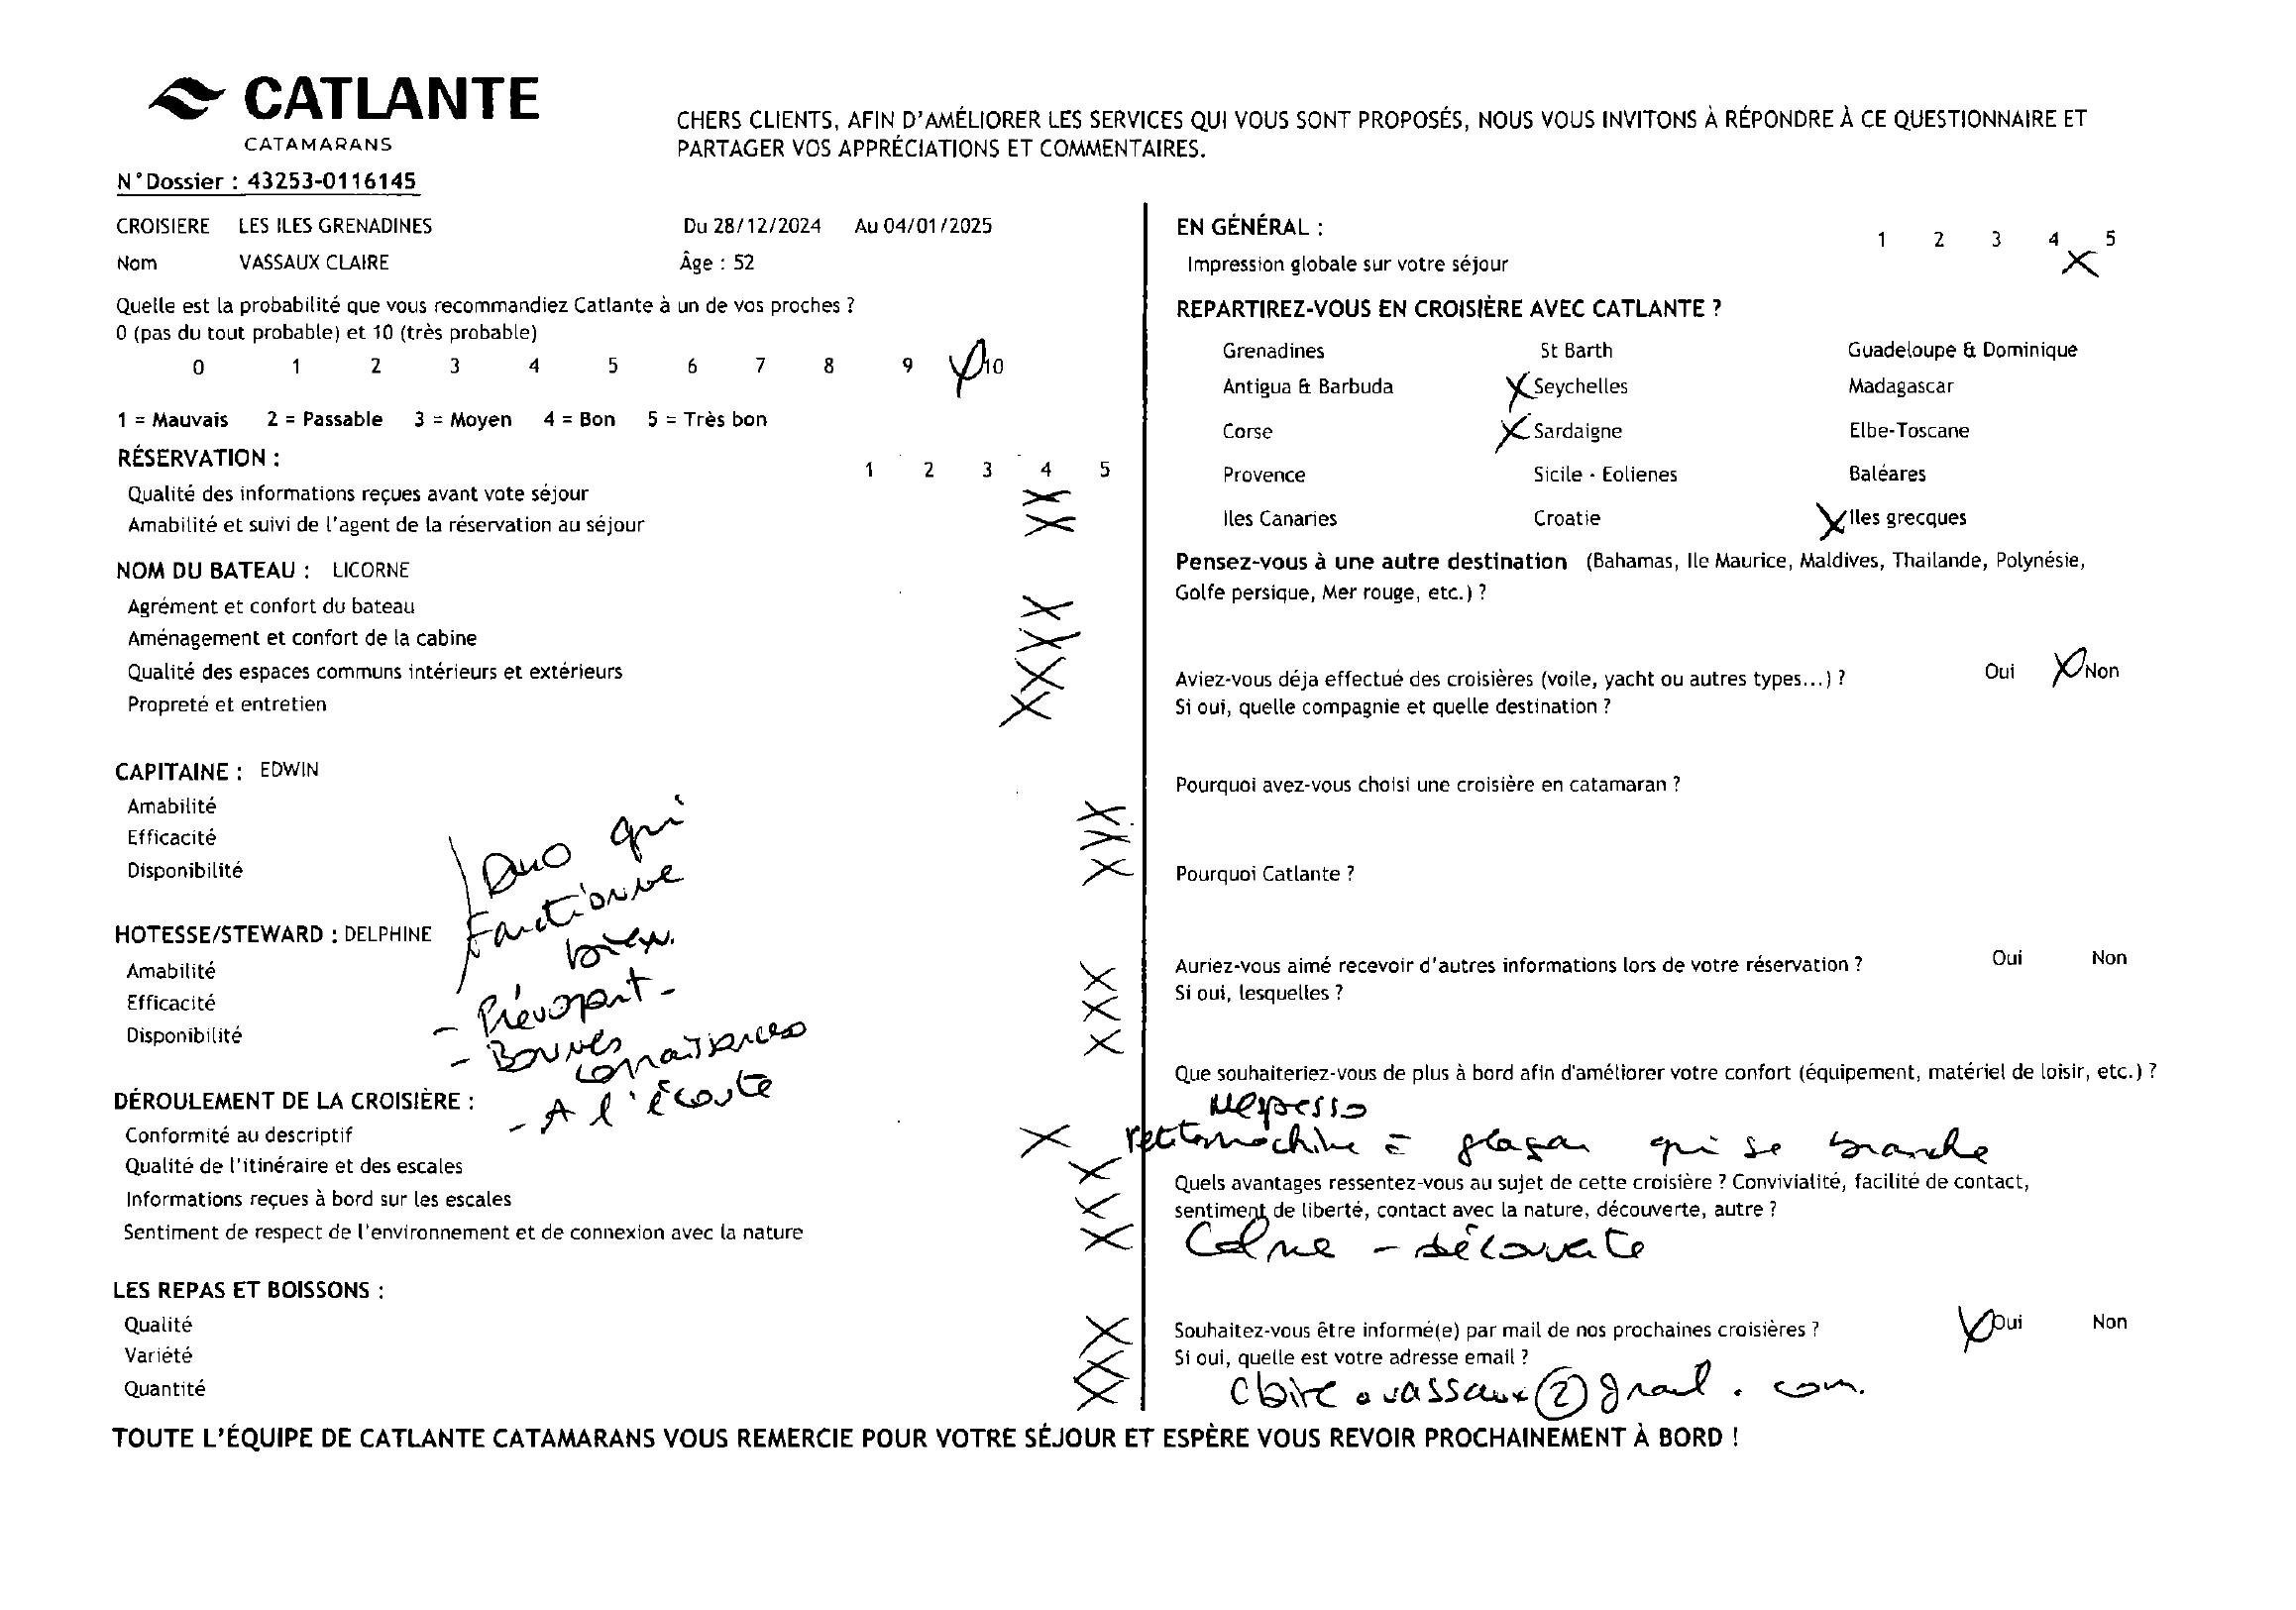 CATLANTE
CATAMARANS
CHERS CLIENTS, AFIN D'AMÉLIORER LES SERVICES QUI VOUS SONT PROPOSÉS, NOUS VOUS INVITONS À RÉPONDRE À CE QUESTIONNAIRE ET
PARTAGER VOS APPRÉCIATIONS ET COMMENTAIRES.
N°Dossier : 43253-0116145
CROISIERE LES ILES GRENADINES Du 28/12/2024 Au 04/01/2025
Nom VASSAUX CLAIRE Âge : 52
Quelle est la probabilité que vous recommandiez Catlante à un de vos proches ?
0 (pas du tout probable) et 10 (très probable)
0 1 2 3 4 5 6 7 8 9 X 10
1 = Mauvais 2 = Passable 3 = Moyen 4 = Bon 5 = Très bon
RÉSERVATION :
1 2 3 4 5
Qualité des informations reçues avant vote séjour X
Amabilité et suivi de l'agent de la réservation au séjour X
NOM DU BATEAU : LICORNE
Agrément et confort du bateau X
Aménagement et confort de la cabine X
Qualité des espaces communs intérieurs et extérieurs X
Propreté et entretien X
CAPITAINE : EDWIN
Amabilité X
Efficacité X
Disponibilité X
Duo qui
fonctionne
bien.
HOTESSE/STEWARD : DELPHINE
Amabilité X
Efficacité X
Disponibilité X
- Prévoyant -
- Bonnes
connaissances
- A l'écoute
DÉROULEMENT DE LA CROISIÈRE :
Conformité au descriptif X
Qualité de l'itinéraire et des escales X
Informations reçues à bord sur les escales X
Sentiment de respect de l'environnement et de connexion avec la nature X
LES REPAS ET BOISSONS :
Qualité X
Variété X
Quantité X
EN GÉNÉRAL :
1 2 3 4 5
Impression globale sur votre séjour X
REPARTIREZ-VOUS EN CROISIÈRE AVEC CATLANTE ?
Grenadines St Barth Guadeloupe & Dominique
Antigua & Barbuda X Seychelles Madagascar
Corse X Sardaigne Elbe-Toscane
Provence Sicile - Eolienes Baléares
Iles Canaries Croatie X Iles grecques
Pensez-vous à une autre destination (Bahamas, Ile Maurice, Maldives, Thailande, Polynésie,
Golfe persique, Mer rouge, etc.) ?
Aviez-vous déja effectué des croisières (voile, yacht ou autres types...) ? Oui X Non
Si oui, quelle compagnie et quelle destination ?
Pourquoi avez-vous choisi une croisière en catamaran ?
Pourquoi Catlante ?
Auriez-vous aimé recevoir d'autres informations lors de votre réservation ? Oui Non
Si oui, lesquelles ?
Que souhaiteriez-vous de plus à bord afin d'améliorer votre confort (équipement, matériel de loisir, etc.) ?
Nespresso
machine à glaçon qui se branche
Quels avantages ressentez-vous au sujet de cette croisière ? Convivialité, facilité de contact,
sentiment de liberté, contact avec la nature, découverte, autre ?
Calme - découverte
Souhaitez-vous être informé(e) par mail de nos prochaines croisières ? X Oui Non
Si oui, quelle est votre adresse email ?
claire.vassaux@gmail.com.
TOUTE L'ÉQUIPE DE CATLANTE CATAMARANS VOUS REMERCIE POUR VOTRE SÉJOUR ET ESPÈRE VOUS REVOIR PROCHAINEMENT À BORD !